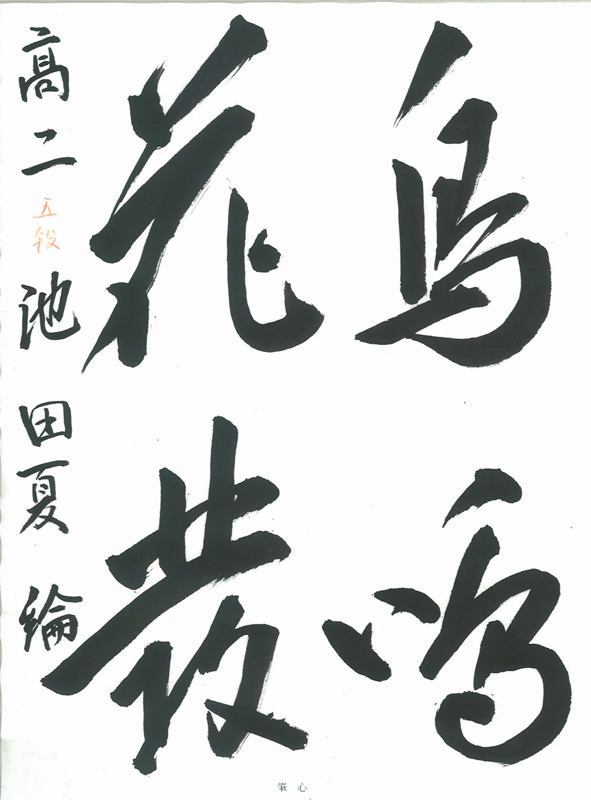 鳥鳴
花發
高二 五段 池田夏綸
心筆